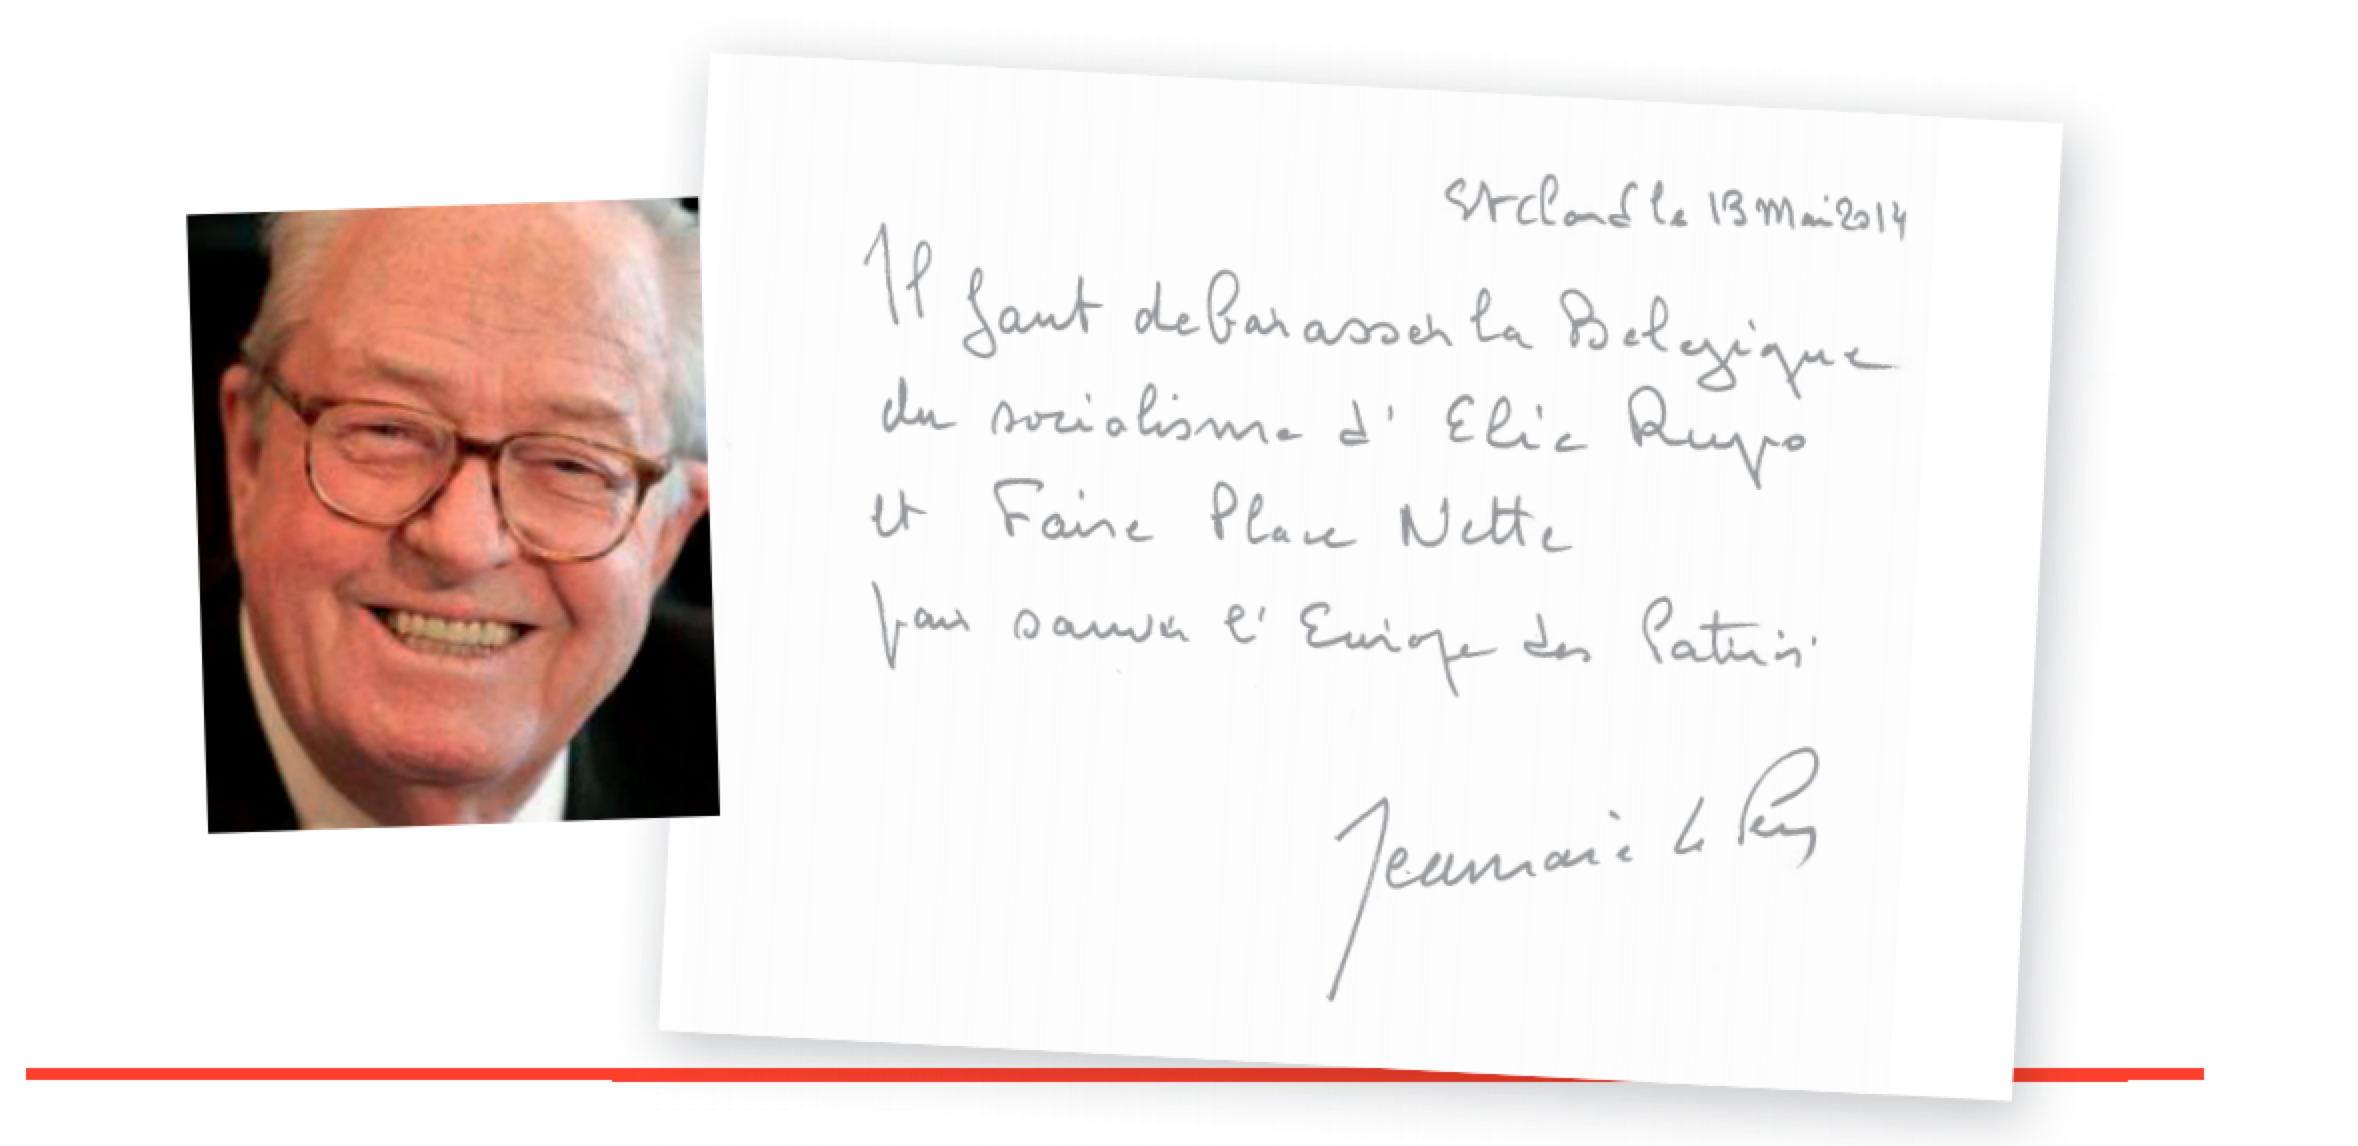 St Cloud le 13 Mai 2014
Il faut debarasser la Belgique
du socialisme d' Elie Rupo
et Faire Place Nette
pour sauver l' Europe des Patries.
Jean marie Le Pen